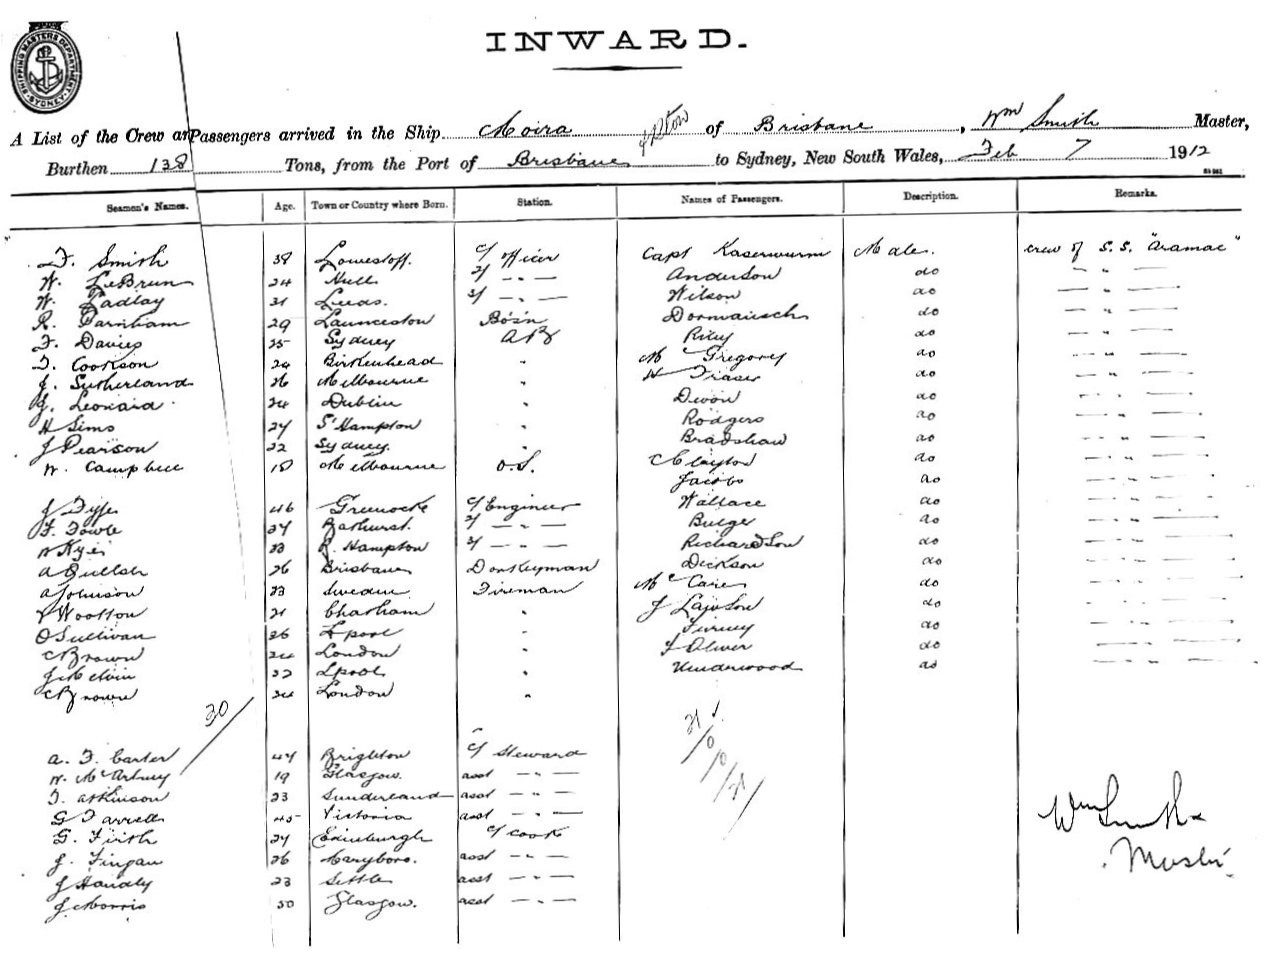 SHIPPING MASTERS DEPARTMENT SYDNEY
INWARD.
A List of the Crew an Passengers arrived in the Ship Moira of Brisbane, Wm Smith Master,
Burthen 138 Tons, from the Port of Brisbane to Sydney, New South Wales, Feb 7 1912
Seamen's Names. Age. Town or Country where Born. Station. Names of Passengers. Description. Remarks.
F. Smith 38 Lowestoff. c/ Officer Capt Kaserwurm Male. crew of S.S. "Aramac"
W. LeBrun 24 Hull 2/ - „ - Anderson do - „ -
W. Ladlay 31 Leeds. 3/ - „ - Wilson do - „ -
R. Parnham 29 Launceston Bo's'n Dormauisch do - „ -
F. Davies 25 Sydney AB Riley do - „ -
T. Cookson 24 Birkenhead „ Mc Gregory do - „ -
J. Sutherland 26 Melbourne „ H Fraser do - „ -
J. Leonard 24 Dublin „ Devon do - „ -
H Sims 24 S'Hampton „ Rodgers do - „ -
J Pearson 22 Sydney. „ Bradshaw do - „ -
W. Campbell 18 Melbourne O.S. Clayton do - „ -
Jacobs do - „ -
J Fyfe 46 Greenock c/ Engineer Wallace do - „ -
F. Fowle 27 Bathurst. 2/ - „ - Bulger do - „ -
W Kyei 33 R. Hampton 3/ - „ - Richardson do - „ -
A Bullsh 26 Brisbane Donkeyman Dickson do - „ -
A Johnson 33 Sweden Fireman Mc Caire do - „ -
Wootton 21 Chatham „ J Lawson do - „ -
O Sullivan 26 L'pool „ Turney do - „ -
C Brown 24 London „ J Oliver do - „ -
J Melvin 32 L'pool „ Underwood do - „ -
C Brown 34 London „
30
21
0
0
21
A. F. Carter 47 Brighton c/ Steward
W. McArtney 19 Glasgow. asst - „ -
T. Atkinson 23 Sunderland asst - „ -
G Farrell 45 Victoria asst - „ -
G. Firth 27 Edinburgh c/ Cook
J. Fingan 26 Maryboro. asst - „ -
J Handly 23 Settle asst - „ -
J. Morris 30 Glasgow. asst - „ -
Wm Smith
Master